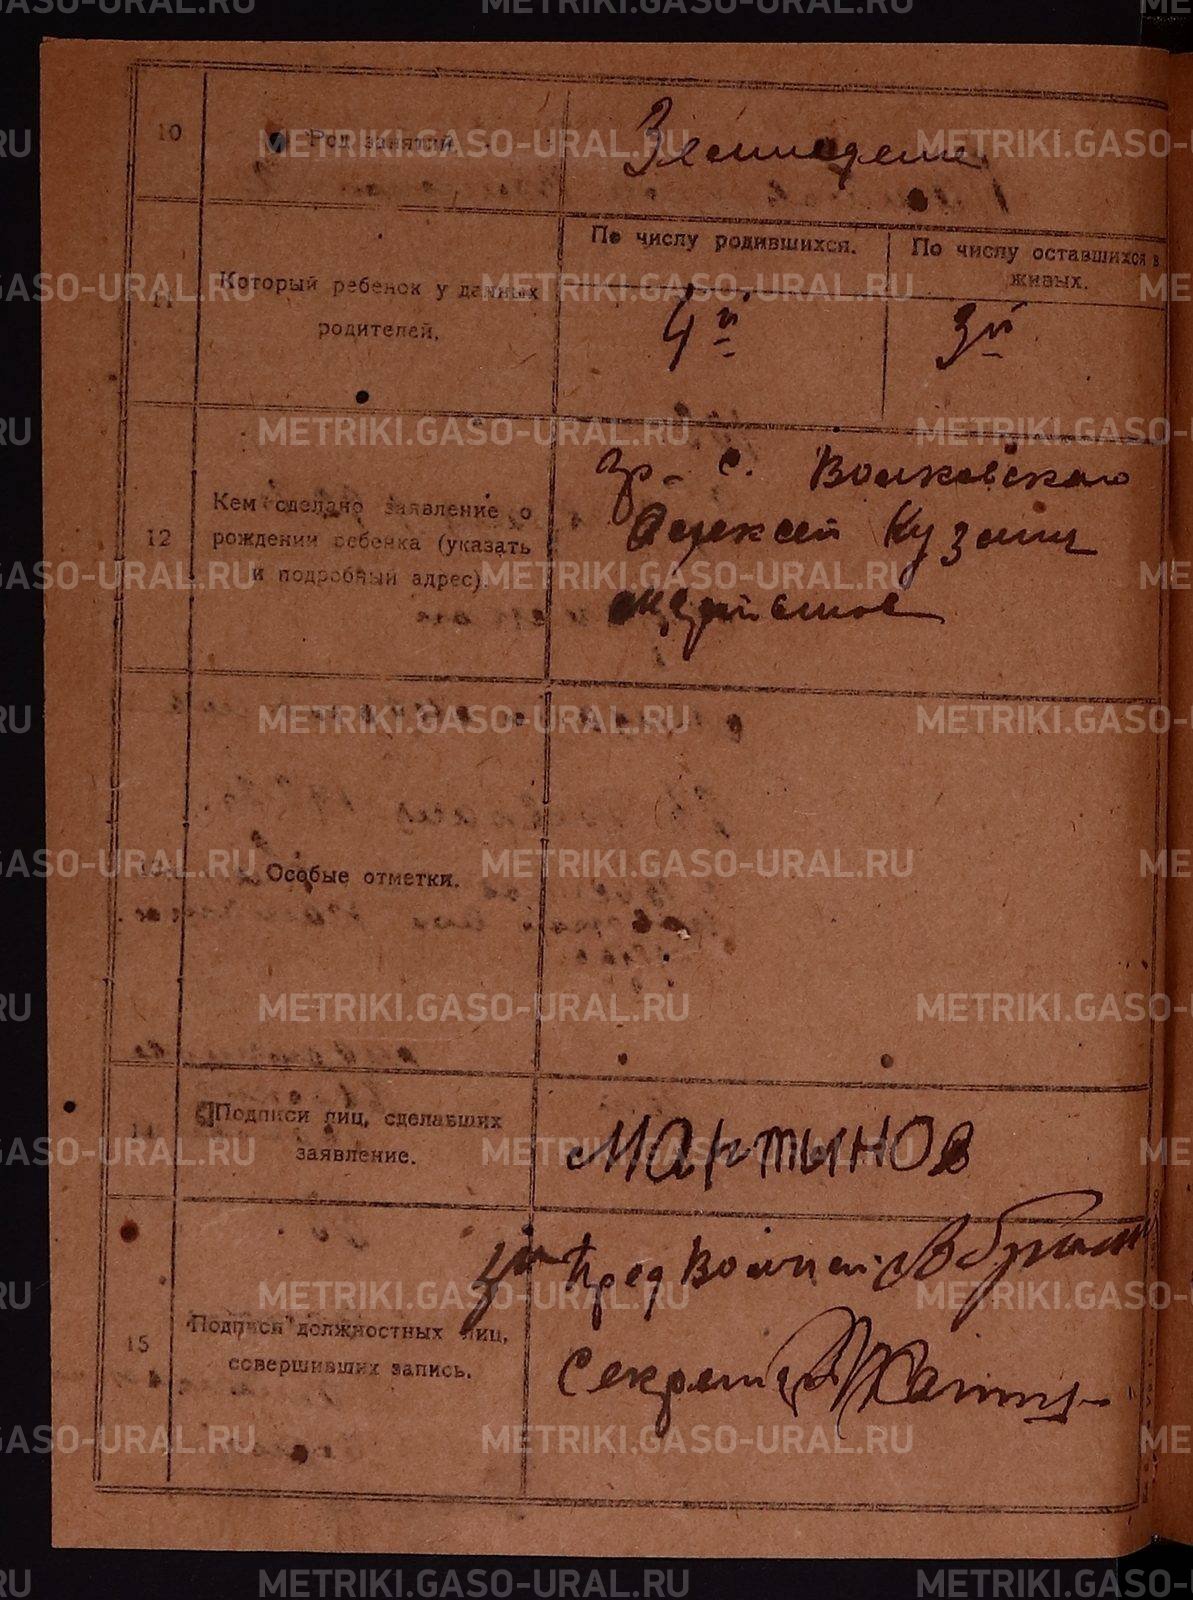 METRIKI.GASO-URAL.RU
10 Род занятий. Земледелие
11 Который ребенок у данных
родителей.
По числу родившихся.
4й
По числу оставшихся в
живых.
3й
12 Кем сделано заявление о
рождении ребенка (указать
и подробный адрес).
гр-н с. Волковского
Алексей Кузмич
Мартынов
13 Особые отметки.
14 Подписи лиц, сделавших
заявление.
Мартынов
15 Подписи должностных лиц,
совершивших запись.
Пред
Секретарь